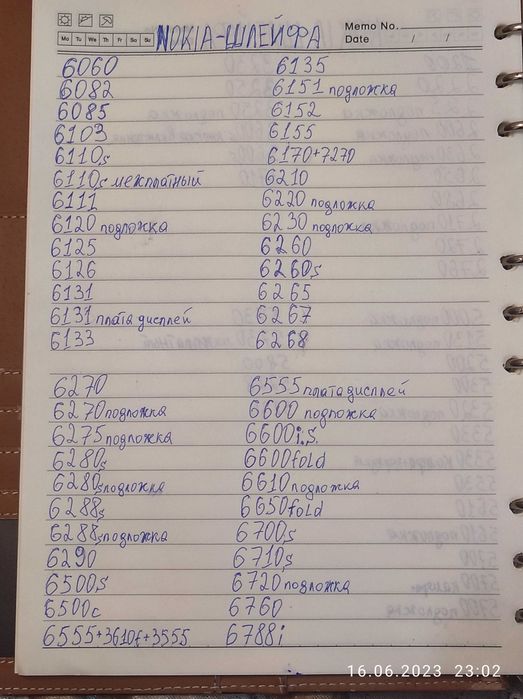 Memo No.
Mo Tu We Th Fr Sa Su
Date / /
NOKIA-ШЛЕЙФА
6060
6082
6085
6103
6110s
6110s межплатный
6111
6120 подложка
6125
6126
6131
6131 плата дисплей
6133
6135
6151 подложка
6152
6155
6170+7270
6210
6220 подложка
6230 подложка
6260
6260s
6265
6267
6268
6270
6270 подложка
6275 подложка
6280s
6280s подложка
6288s
6288s подложка
6290
6500s
6500c
6555+3610f+3555
6555 плата дисплей
6600 подложка
6600i.s.
6600fold
6610 подложка
6650fold
6700s
6710s
6720 подложка
6760
6788i
16.06.2023 23:02